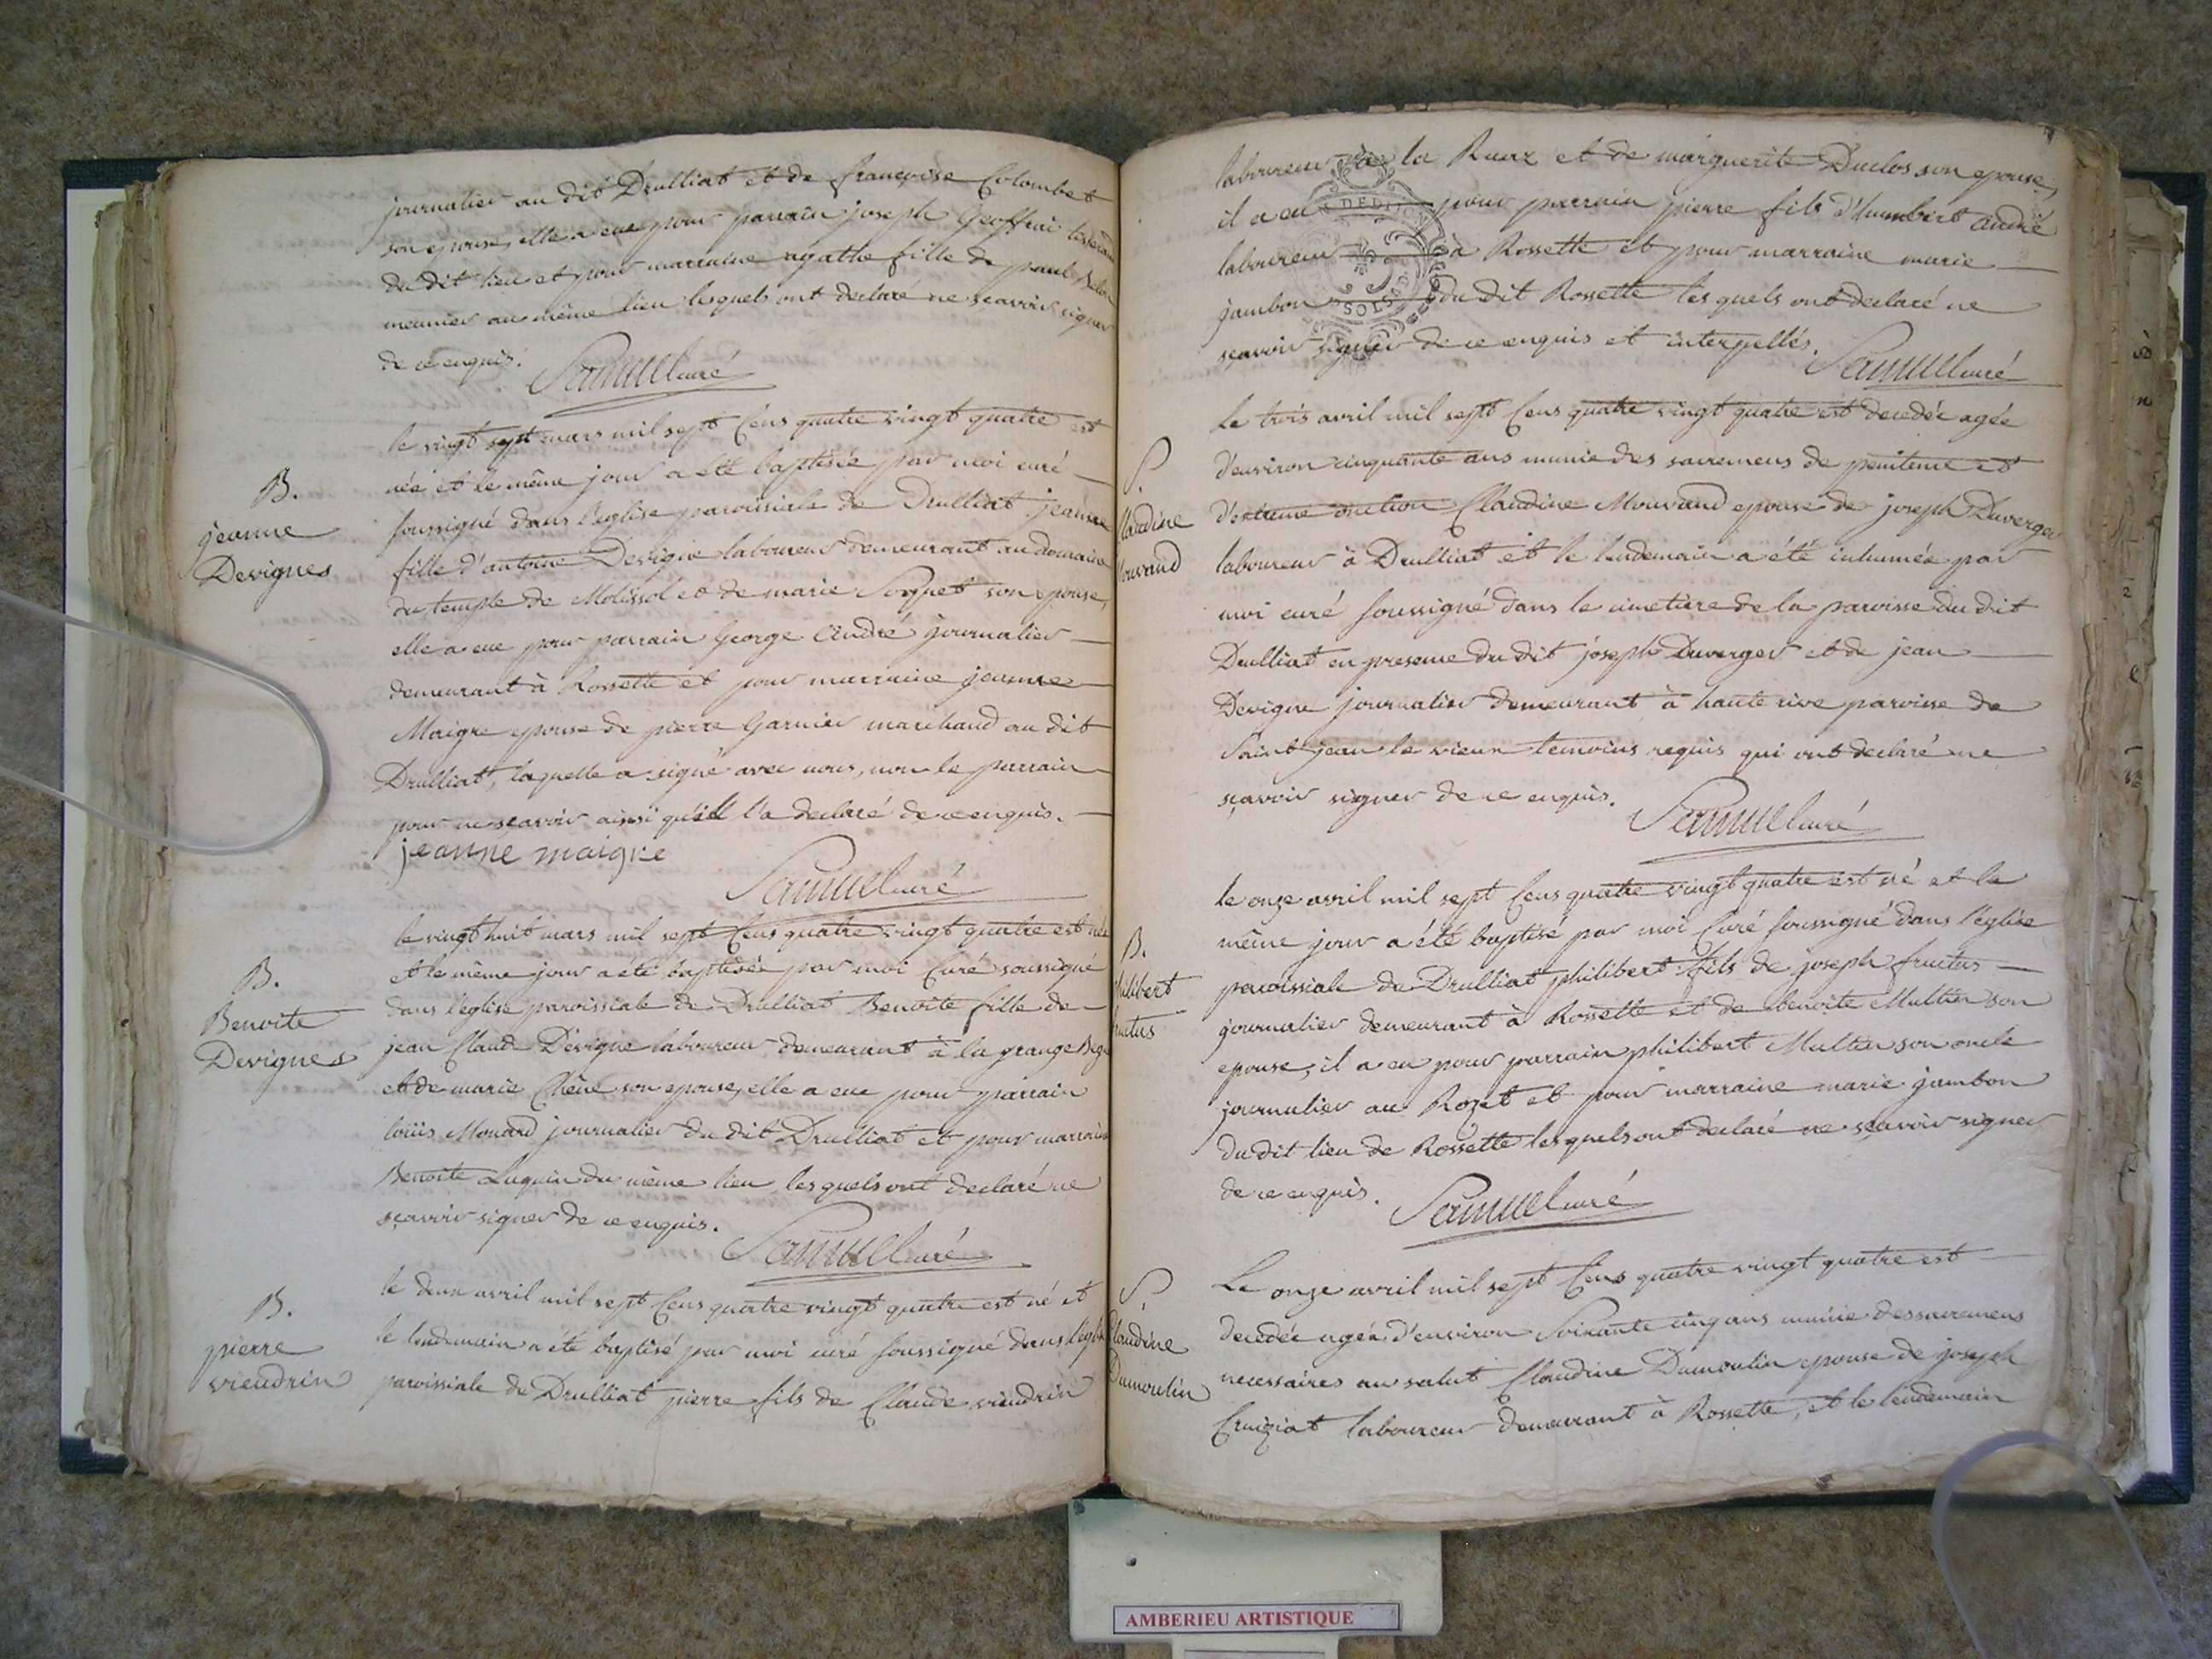 journalier au dit Drulliat et de françoise Colombet
son epouse, elle a eue pour parrain joseph Geoffrai tisserand
du dit lieu et pour marraine agathe fille de paul
meunier au même lieu lesquels ont declaré ne sçavoir signer
de ce enquis.
Samuel curé
B.
jeanne
Devignes
le vingt sept mars mil sept Cens quatre vingt quatre est
née et le même jour a été baptisée par moi curé
soussigné dans l'eglise paroissiale de Drulliat jeanne
fille d'antoine Devigne laboureur demeurant au domaine
du temple de Molissol et de marie son epouse,
elle a eue pour parrain George André journalier
demeurant à Rossette et pour marraine jeanne
Maigre epouse de pierre Garnier marchand au dit
Drulliat, laquelle a signé avec nous, non le parrain
pour ne sçavoir ainsi qu'il l'a declaré de ce enquis.
jeanne maigre
Samuel curé
B.
Benoite
Devignes
le vingt huit mars mil sept Cens quatre vingt quatre est née
et le même jour a été baptisée par moi Curé soussigné
dans l'eglise paroissiale de Drulliat Benoite fille de
jean Claude Devigne laboureur demeurant à la grange
et de marie Chêne son epouse, elle a eue pour parrain
loüis Monard journalier du dit Drulliat et pour marraine
Benoite Luquin du même lieu lesquels ont declaré ne
sçavoir signer de ce enquis.
Samuel curé
B.
pierre
vieudrin
le deux avril mil sept Cens quatre vingt quatre est né et
le lendemain a été baptisé par moi curé soussigné dans l'eglise
paroissiale de Drulliat pierre fils de Claude vieudrin
laboureur à la Ruaz et de marguerite Duclos son epouse,
il a eu pour parrain pierre fils d'humbert André
laboureur à Rossette et pour marraine marie
jambon du dit Rossette lesquels ont declaré ne
sçavoir signer de ce enquis et interpellés.
Samuel curé
S.
Claudine
Mouvand
Le trois avril mil sept Cens quatre vingt quatre est decedée agée
d'environ cinquante ans munie des sacremens de penitence et
d'extreme onction Claudine Mouvand epouse de joseph Duverger
laboureur à Drulliat et le lendemain a été inhumée par
moi curé soussigné dans le cimetiere de la paroisse du dit
Drulliat en presence du dit joseph Duverger et de jean
Devigne journalier demeurant à hauterive paroisse de
Saint jean le vieux temoins requis qui ont declaré ne
sçavoir signer de ce enquis.
Samuel curé
B.
philibert
fructus
le onze avril mil sept Cens quatre vingt quatre est né et le
même jour a été baptisé par moi Curé soussigné dans l'eglise
paroissiale de Drulliat philibert fils de joseph fructus
journalier demeurant à Rossette et de benoite Multin son
epouse, il a eu pour parrain philibert Multin son oncle
journalier au Rozet et pour marraine marie jambon
du dit lieu de Rossette lesquels ont declaré ne sçavoir signer
de ce enquis.
Samuel curé
S.
Claudine
Dumoulin
Le onze avril mil sept Cens quatre vingt quatre est
decedée agée d'environ Soixante cinq ans munie des sacremens
necessaires au salut Claudine Dumoulin epouse de joseph
Cruiziat laboureur demeurant à Rossette, et le lendemain
AMBERIEU ARTISTIQUE